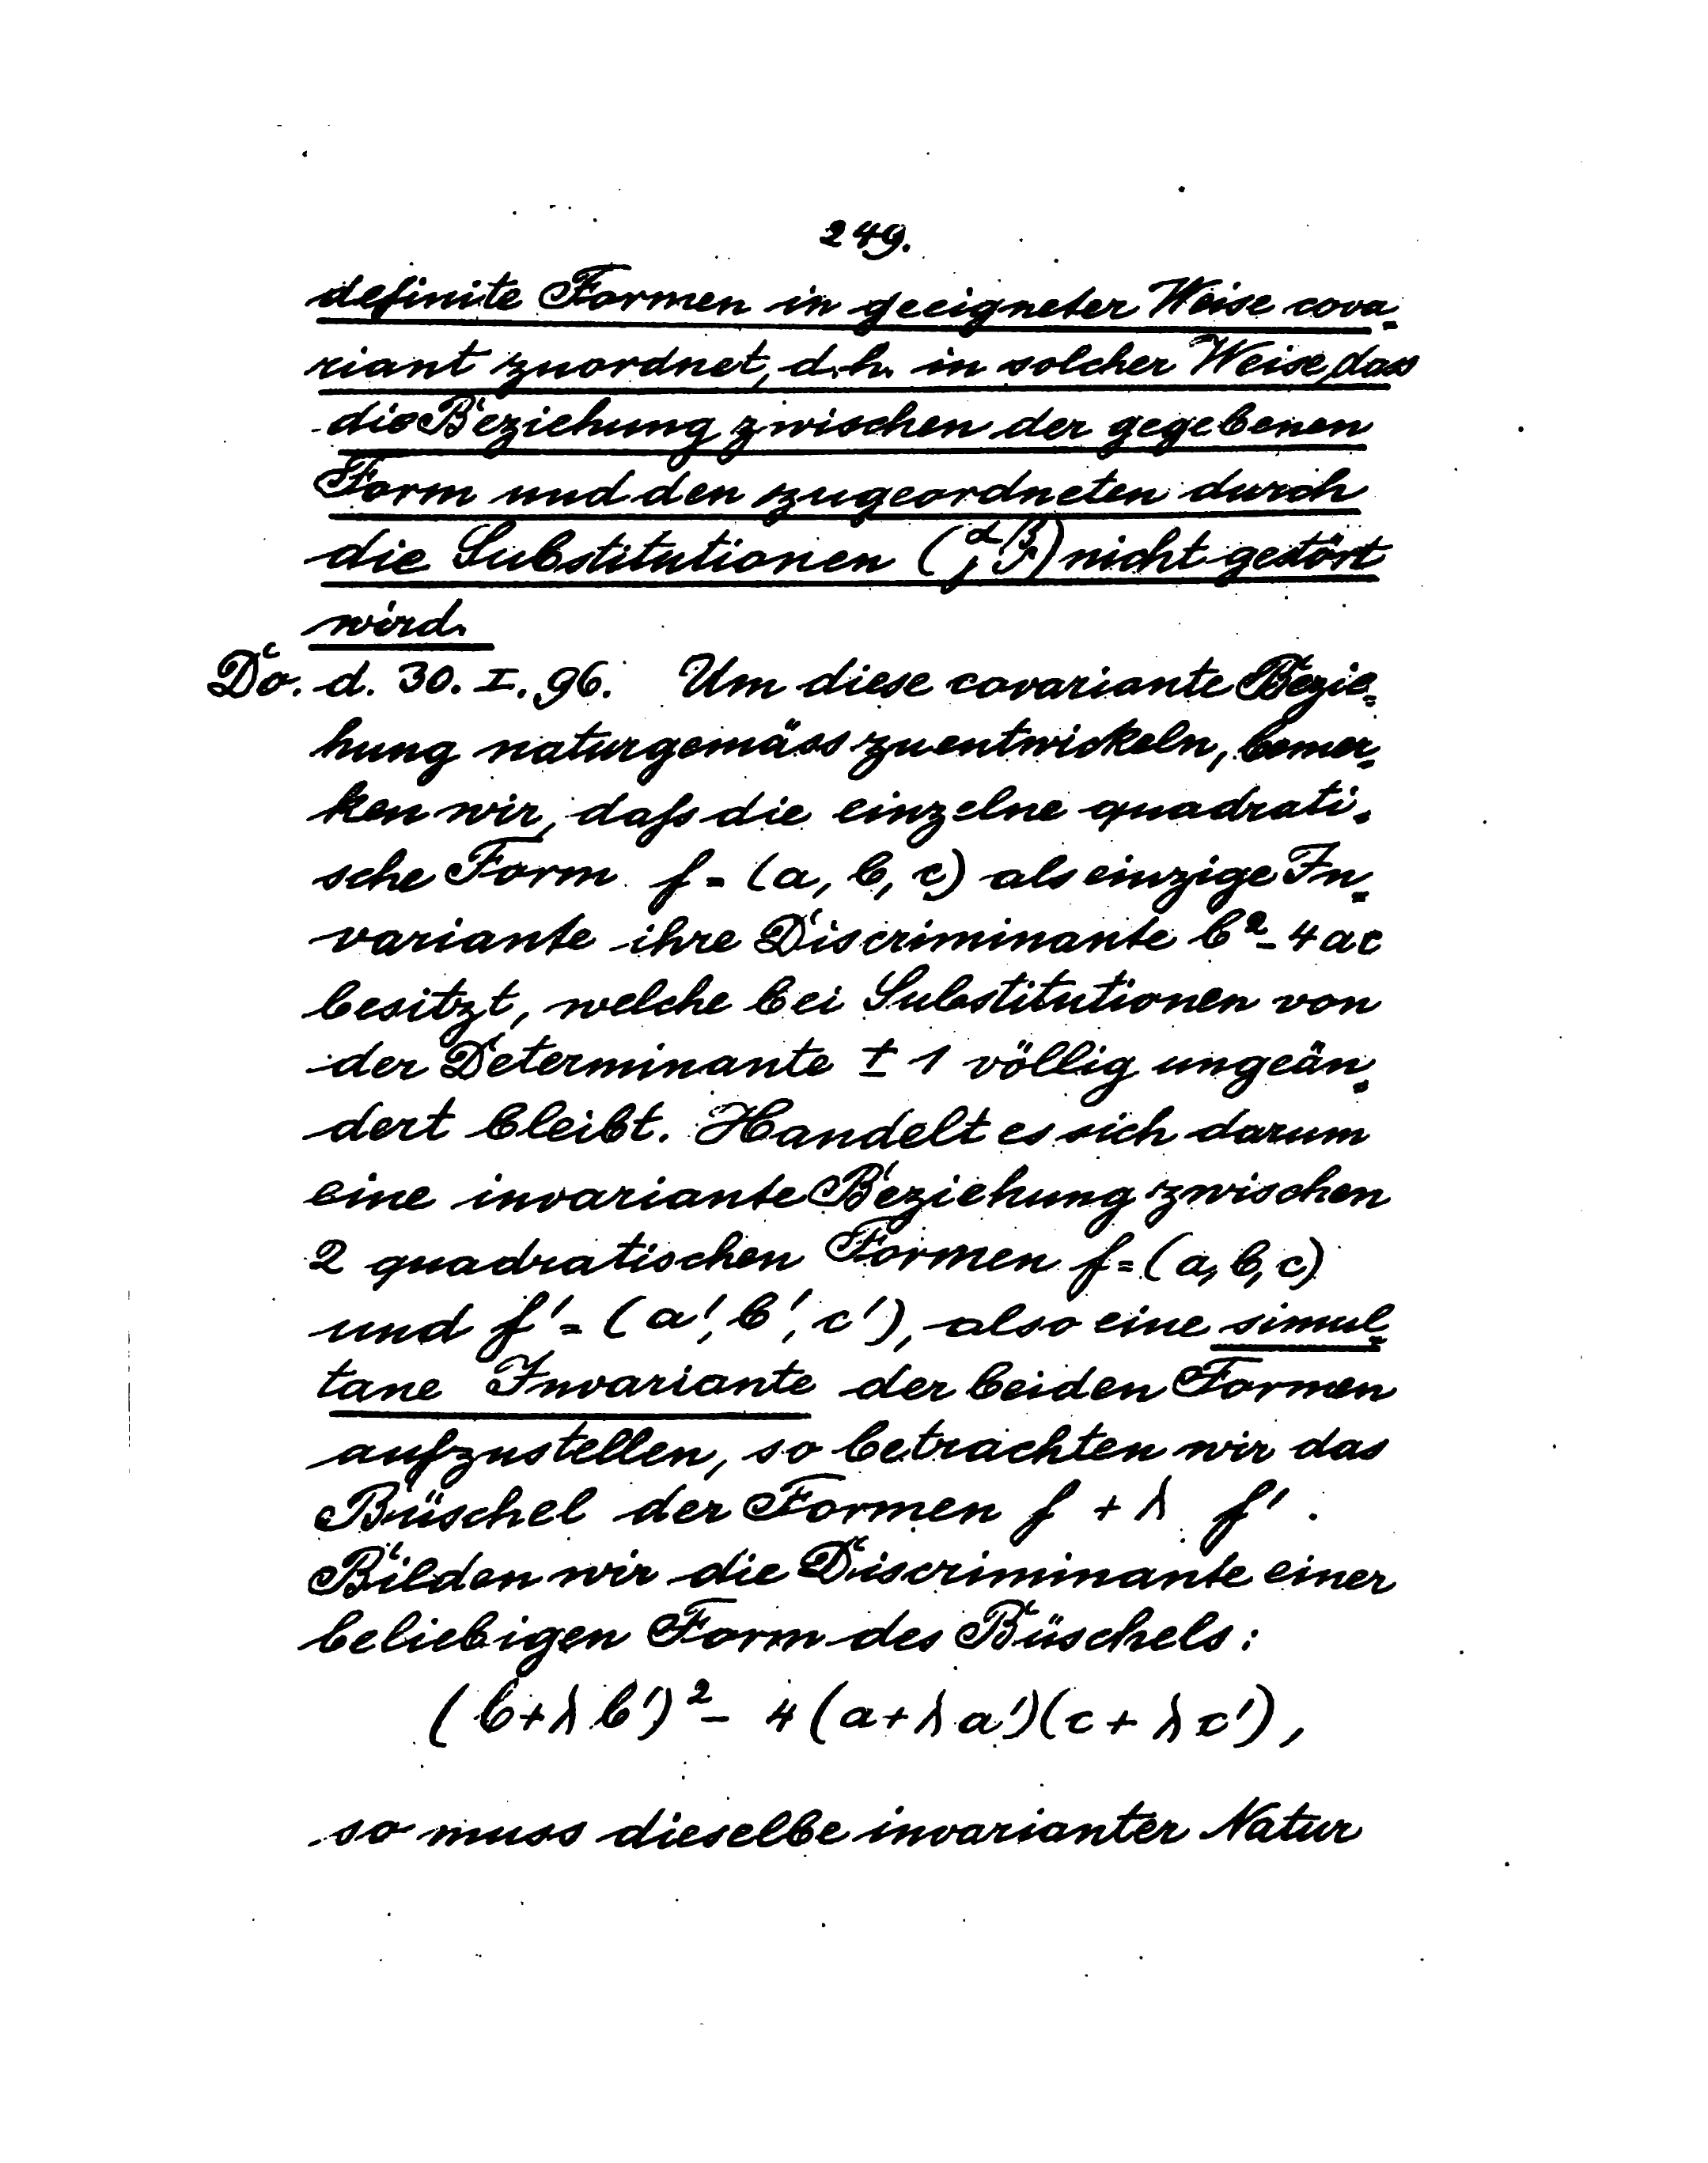 249.
definite Formen in geeigneter Weise cova-
riant zuordnet, d.h. in solcher Weise, dass
die Beziehung zwischen der gegebenen
Form und den zugeordneten durch
die Substitutionen (α β
γ δ) nicht gestört
wird.
Do. d. 30. I. 96. Um diese covariante Bezie-
hung naturgemäss zu entwickeln, bemer-
ken wir, daſs die einzelne quadrati-
sche Form f = (a, b, c) als einzige In-
variante ihre Discriminante b² - 4ac
besitzt, welche bei Substitutionen von
der Determinante ± 1 völlig ungeän-
dert bleibt. Handelt es sich darum
eine invariante Beziehung zwischen
2 quadratischen Formen f = (a, b, c)
und f' = (a', b', c'), also eine simul-
tane Invariante der beiden Formen
aufzustellen, so betrachten wir das
Büschel der Formen f + λ f'.
Bilden wir die Discriminante einer
beliebigen Form des Büschels:
(b+λb')² - 4(a+λa')(c+λc'),
so muss dieselbe invarianter Natur